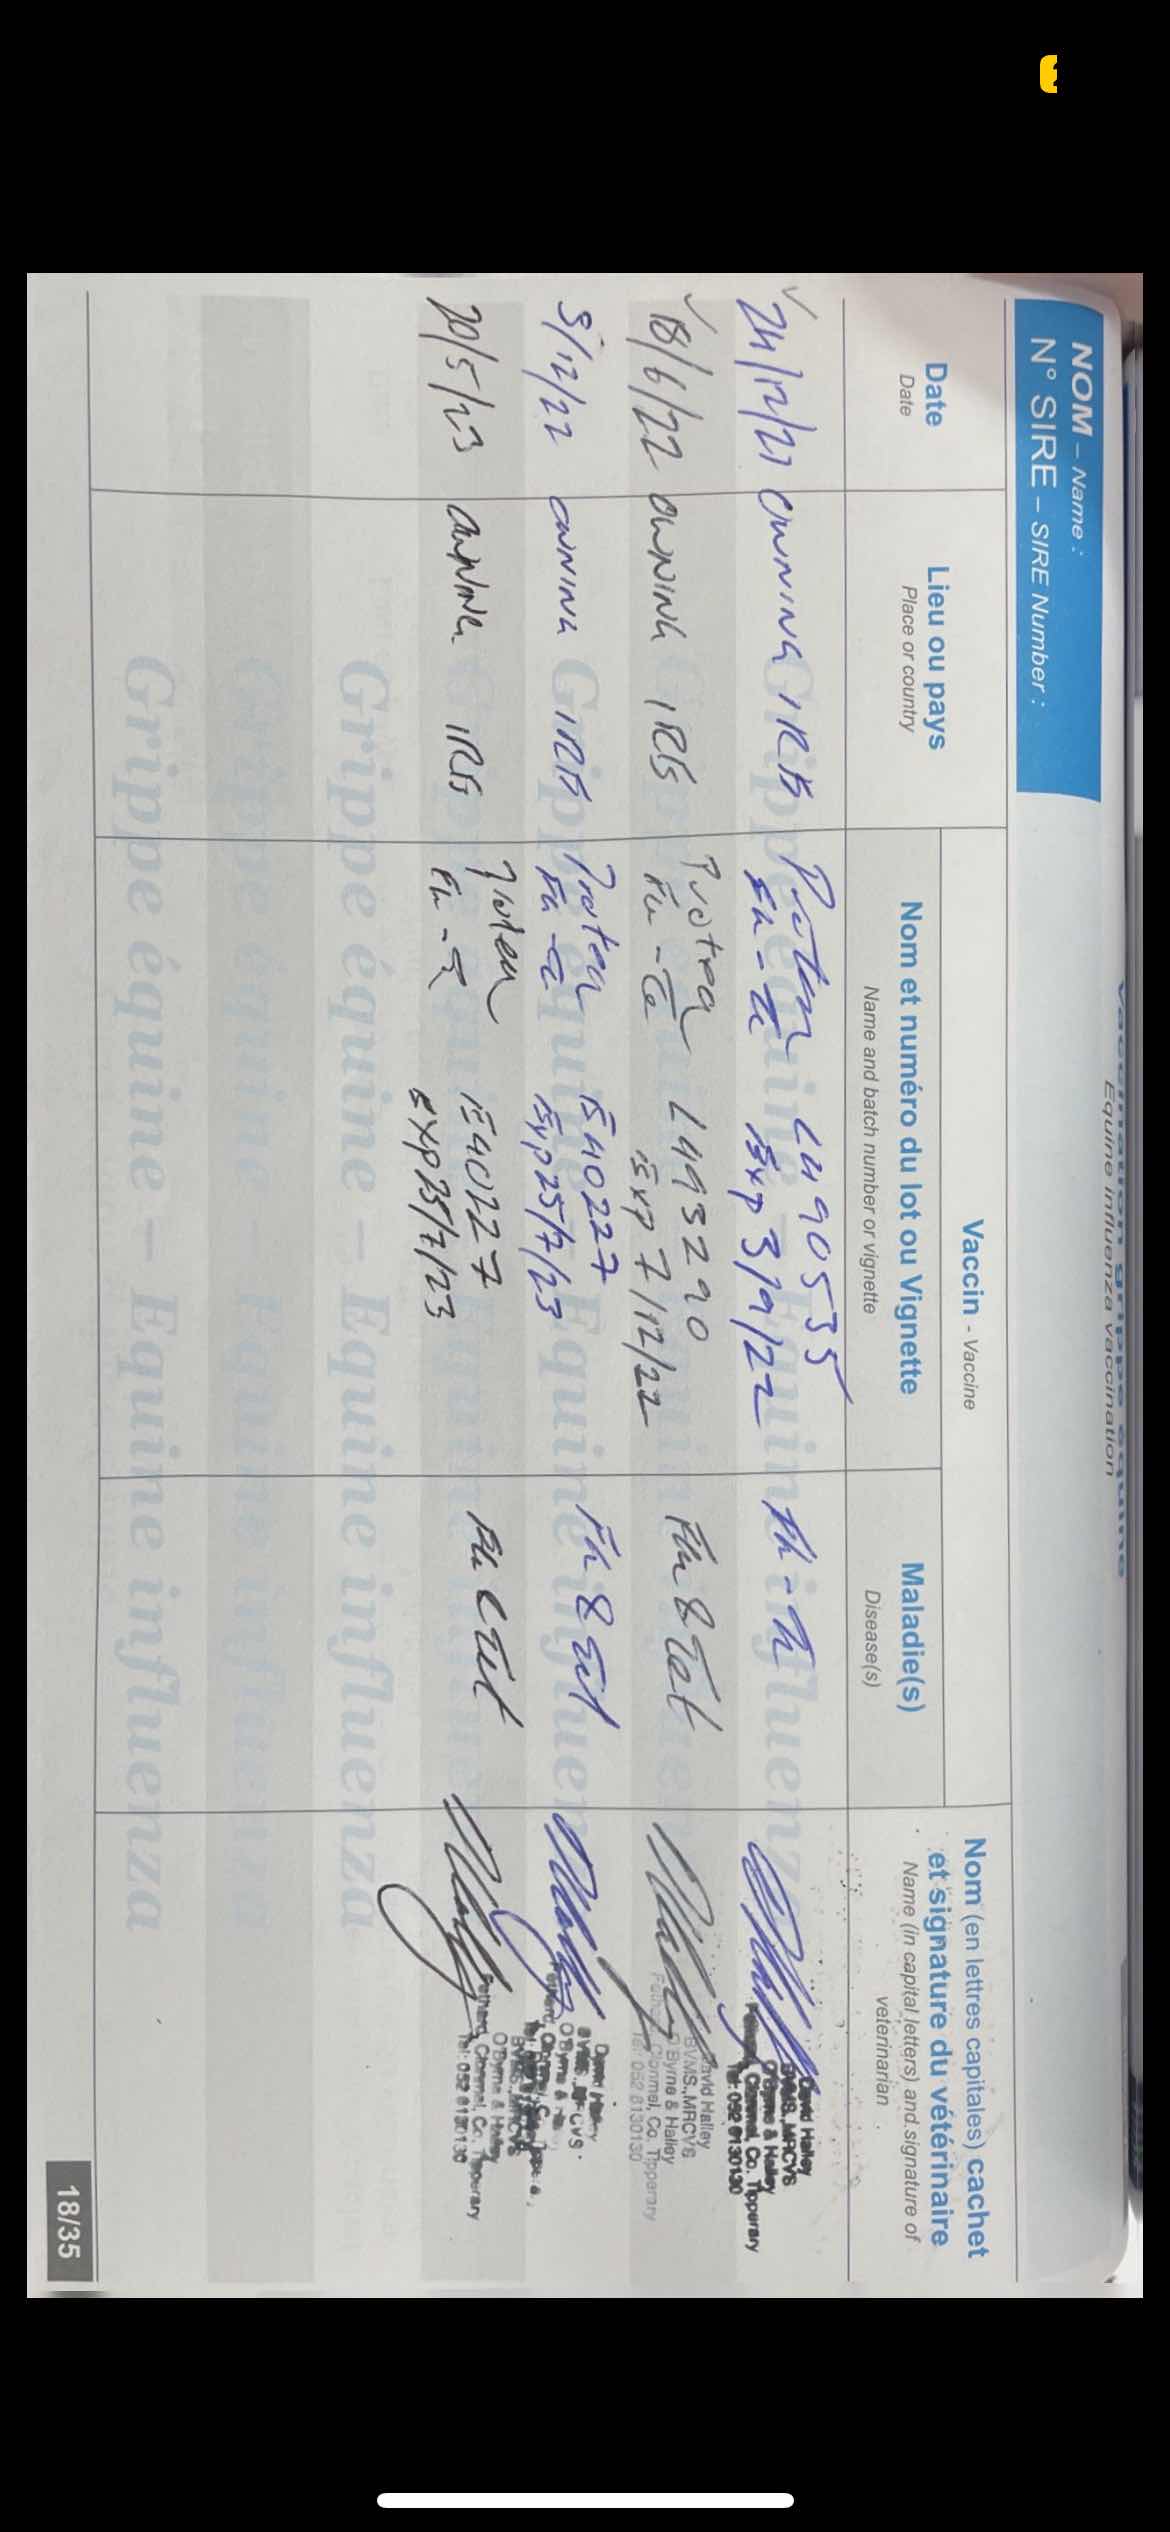 Vaccination grippe équine
Equine influenza vaccination
NOM – Name :
N° SIRE – SIRE Number :
Date
Date
Lieu ou pays
Place or country
Vaccin - Vaccine
Nom et numéro du lot ou Vignette
Name and batch number or vignette
Maladie(s)
Disease(s)
Nom (en lettres capitales) cachet
et signature du vétérinaire
Name (in capital letters) and signature of
veterinarian
24/12/21 OWNING IRE L490535
Flu-Te Exp 3/9/22
David Halley
BVMS.,MRCVS
O'Byrne & Halley
Fethard, Clonmel, Co. Tipperary
Tel: 052 6130130
18/6/22 OWNING IRE Proteq L493290 Flu & Tet
Flu-Te Exp 7/12/22
David Halley
BVMS.,MRCVS
O'Byrne & Halley
Fethard, Clonmel, Co. Tipperary
Tel: 052 6130130
/12/22 OWNING IRE Proteq E40227 Flu & Tet
Flu-Te Exp 25/7/23
David Halley
BVMS.,MRCVS.
O'Byrne &
20/5/23 OWNING IRE Proteq E40227 Flu & Tet
Flu-Te Exp 25/7/23
BVMS.,MRCVS
O'Byrne & Halley
Fethard, Clonmel, Co. Tipperary
Tel: 052 6130130
Grippe équine – Equine influenza
Grippe équine – Equine influenza
Grippe équine – Equine influenza
18/35